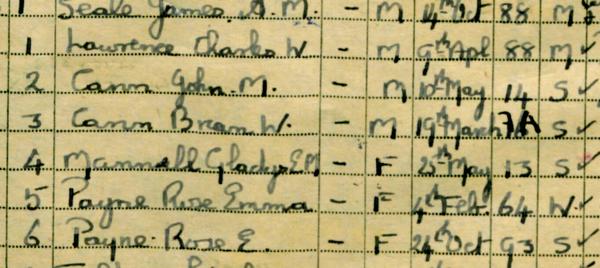 1 Seale James. A. M. - M 14th Oct 88 M
1 Lawrence Charles W - M 9th Apl 88 M ✓
2 Cann John. M. - M 10th May 14 S ✓
3 Cann Brian. W. - M 19th March 7A S ✓
4 Mannell Gladys E M - F 25th May 13 S ✓
5 Payne Rose Emma - F 4th Feb 64 W ✓
6 Payne Rose E. - F 24th Oct 93 S ✓